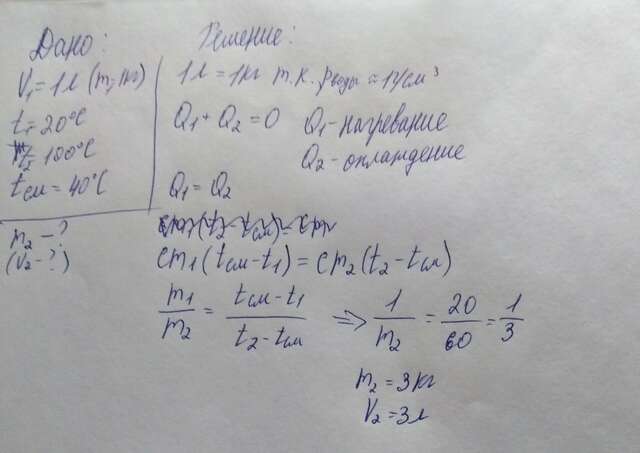 Дано:
V₁ = 1л (m₁ 1кг)
t₁ = 20°C
t₂ = 100°C
tсм = 40°C
m₂ – ?
(V₂ – ?)
Решение:
1л = 1кг т.к. ρводы = 1г/см³
Q₁ + Q₂ = 0 Q₁ – нагревание
Q₂ – охлаждение
Q₁ = Q₂
cm₁(tсм – t₁) = cm₂(t₂ – tсм)
m₁/m₂ = (tсм – t₁)/(t₂ – tсм) => 1/m₂ = 20/60 = 1/3
m₂ = 3кг
V₂ = 3л